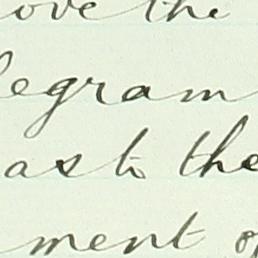 ove the
legram
as to the
ment of